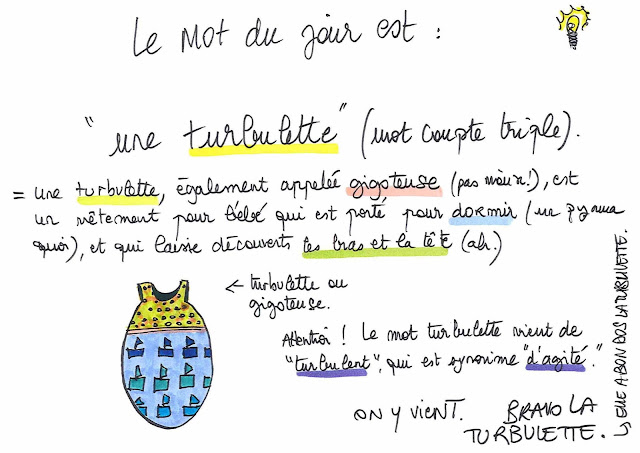 Le mot du jour est :
"une turbulette" (mot compte triple).
= une turbulette, également appelée gigoteuse (pas mieux!), est
un vêtement pour bébé qui est porté pour dormir (un pyjama
quoi), et qui laisse découverts les bras et la tête (ah.)
← turbulette ou
gigoteuse.
Attention ! Le mot turbulette vient de
"turbulent", qui est synonyme "d'agité."
ON Y VIENT. BRAVO LA
TURBULETTE.
↳ ELLE A BON DOS LA TURBULETTE.